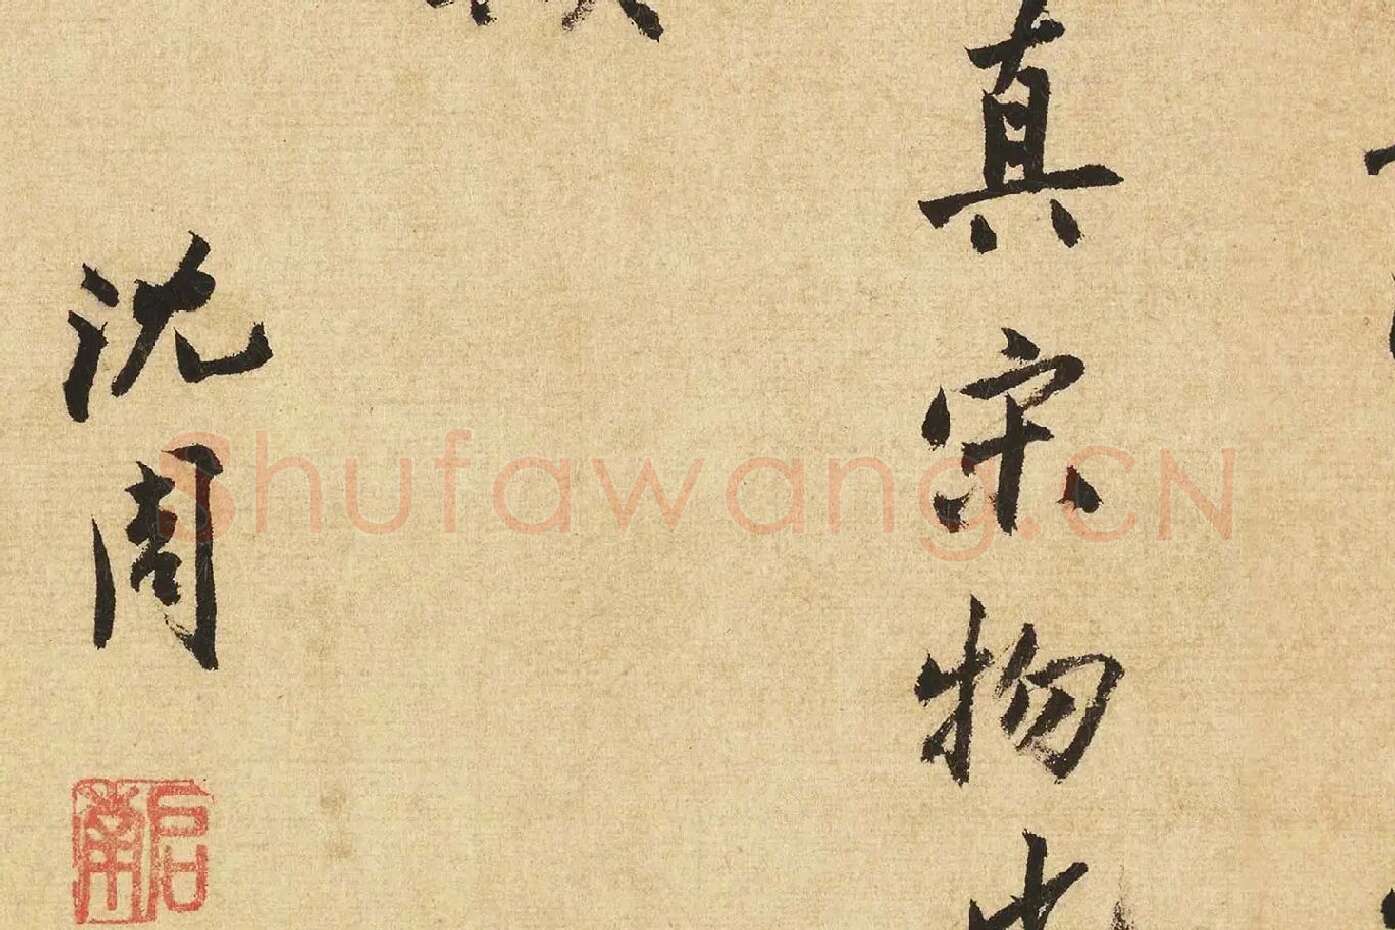 真宋物也
沈周
啟南
Shufawang.CN